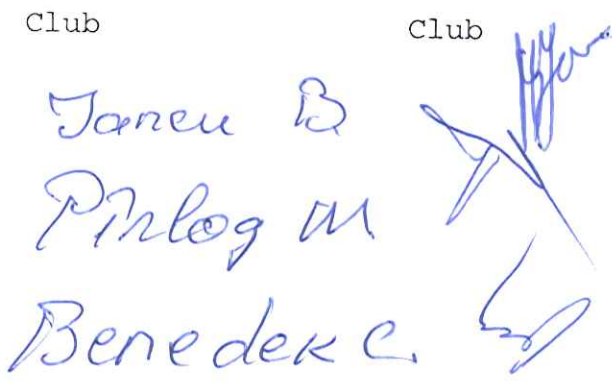 Club Club
Iancu B
Pîrlog M
Benedek C.